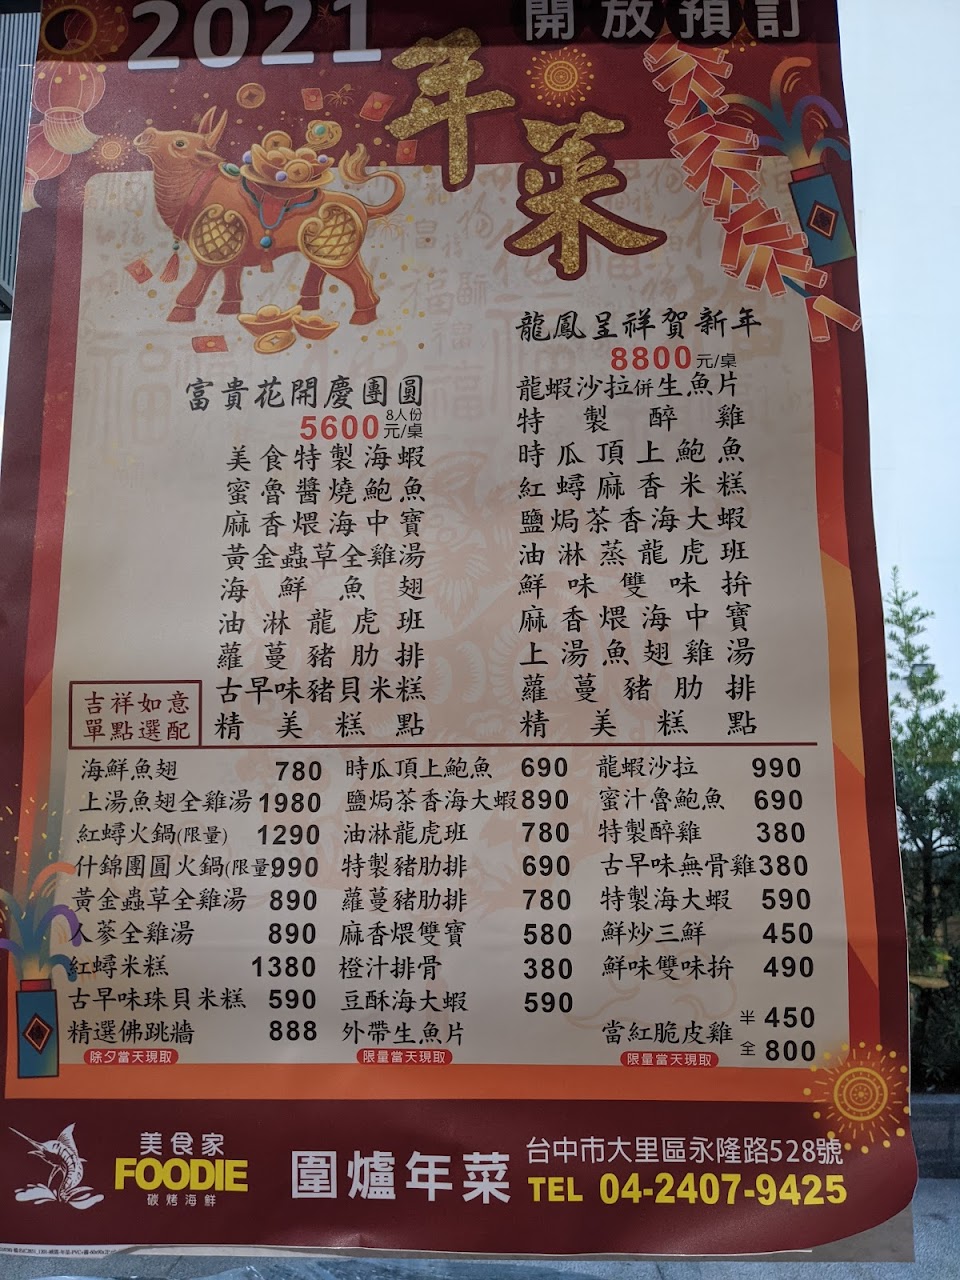 2021
開放預訂
年菜
富貴花開慶團圓
5600 8人份 元/桌
美食特製海蝦
蜜魯醬燒鮑魚
麻香煨海中寶
黃金蟲草全雞湯
海鮮魚翅
油淋龍虎班
蘿蔓豬肋排
古早味豬貝米糕
精美糕點
龍鳳呈祥賀新年
8800元/桌
龍蝦沙拉併生魚片
特製醉雞
時瓜頂上鮑魚
紅蟳麻香米糕
鹽焗茶香海大蝦
油淋蒸龍虎班
鮮味雙味拚
麻香煨海中寶
上湯魚翅雞湯
蘿蔓豬肋排
精美糕點
吉祥如意
單點選配
海鮮魚翅 780
上湯魚翅全雞湯 1980
紅蟳火鍋(限量) 1290
什錦團圓火鍋(限量) 990
黃金蟲草全雞湯 890
人蔘全雞湯 890
紅蟳米糕 1380
古早味珠貝米糕 590
精選佛跳牆 888
除夕當天現取
時瓜頂上鮑魚 690
鹽焗茶香海大蝦 890
油淋龍虎班 780
特製豬肋排 690
蘿蔓豬肋排 780
麻香煨雙寶 580
橙汁排骨 380
豆酥海大蝦 590
外帶生魚片
限量當天現取
龍蝦沙拉 990
蜜汁魯鮑魚 690
特製醉雞 380
古早味無骨雞 380
特製海大蝦 590
鮮炒三鮮 450
鮮味雙味拚 490
當紅脆皮雞 半 450 全 800
限量當天現取
美食家
FOODIE
碳烤海鮮
圍爐年菜
台中市大里區永隆路528號
TEL 04-2407-9425